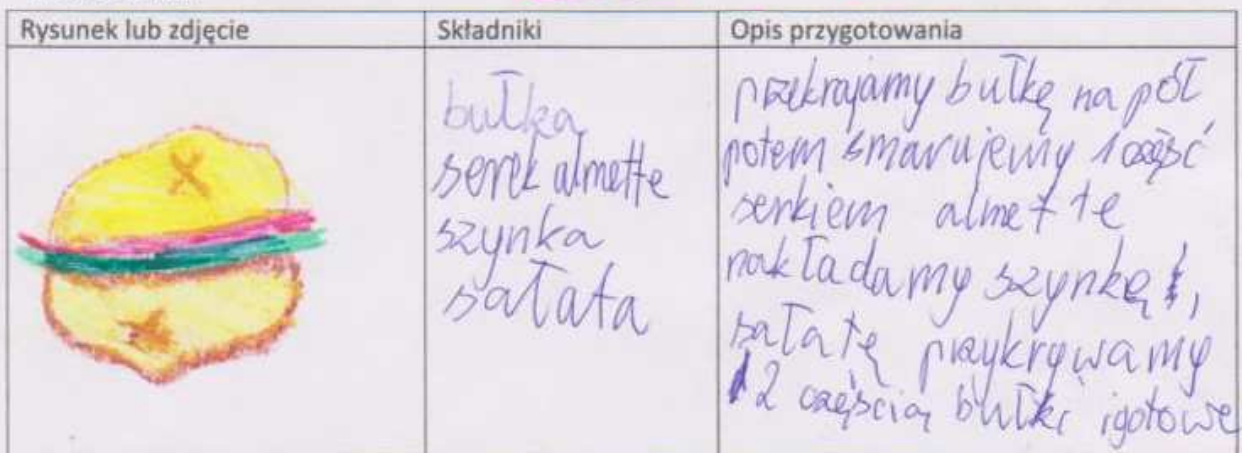 Rysunek lub zdjęcie
Składniki
Opis przygotowania
bułka
serek almette
szynka
sałata
przekrajamy bułkę na pół
potem smarujemy 1 część
serkiem almette
nakładamy szynkę,
sałatę przykrywamy
2 częścią bułki i gotowe